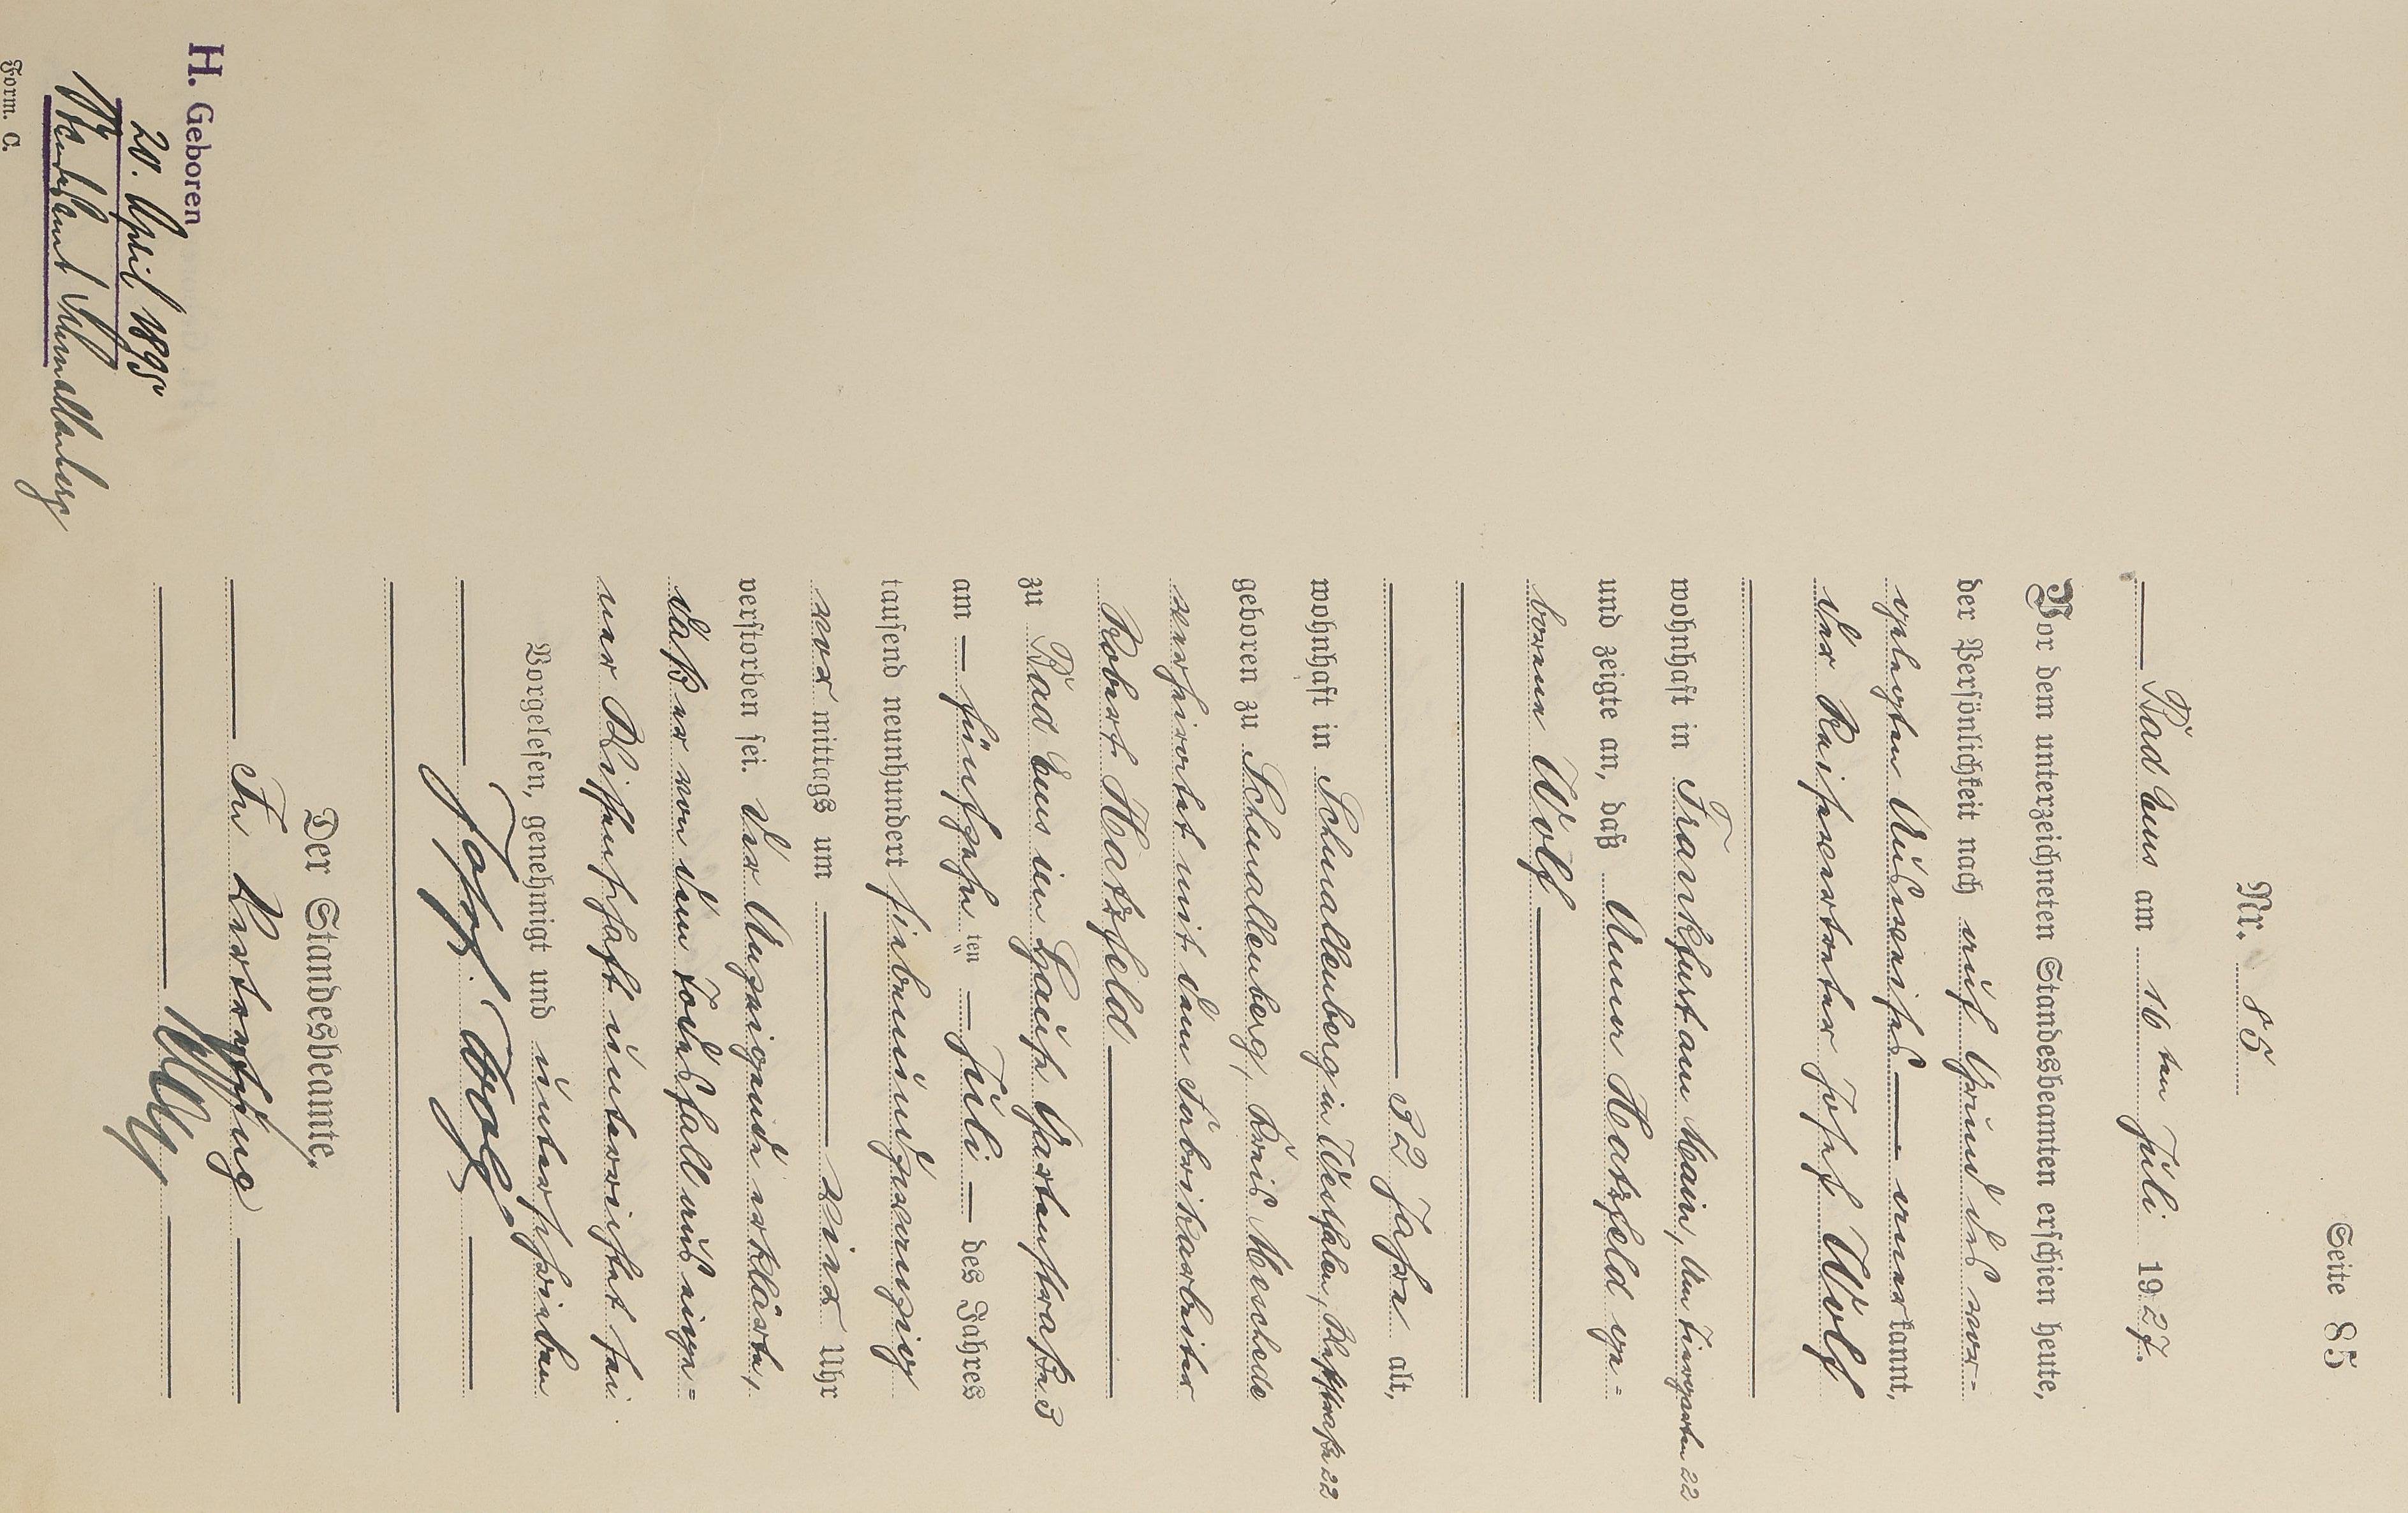 Seite 85
Nr. 85
Bad Ems am 16ten Juli 1927.
Vor dem unterzeichneten Standesbeamten erschien heute,
der Persönlichkeit nach auf Grund des vor-
gelegten Ausweises — anerkannt,
der Reisevertreter Josef Wolf
wohnhaft in Frankfurt am Main, Am Tiergarten 22
und zeigte an, daß Anna Hatzfeld ge-
borene Wolf
32 Jahre alt,
wohnhaft in Schmallenberg in Westfalen, Weststraße 22
geboren zu Schmallenberg, Kreis Meschede
verheiratet mit dem Fabrikarbeiter
Robert Hatzfeld
zu Bad Ems im Hause Gartenstraße 3
am — fünfzehnten — Juli — des Jahres
tausend neunhundert siebenundzwanzig
vor mittags um — vier Uhr
verstorben sei. Der Anzeigende erklärte,
daß er von dem Todesfall aus eige-
ner Wissenschaft unterrichtet sei.
Vorgelesen, genehmigt und unterschrieben
Josef Wolf
Der Standesbeamte.
In Vertretung
H. Geboren
20. April 1895
Standesamt Schmallenberg
Form. C.